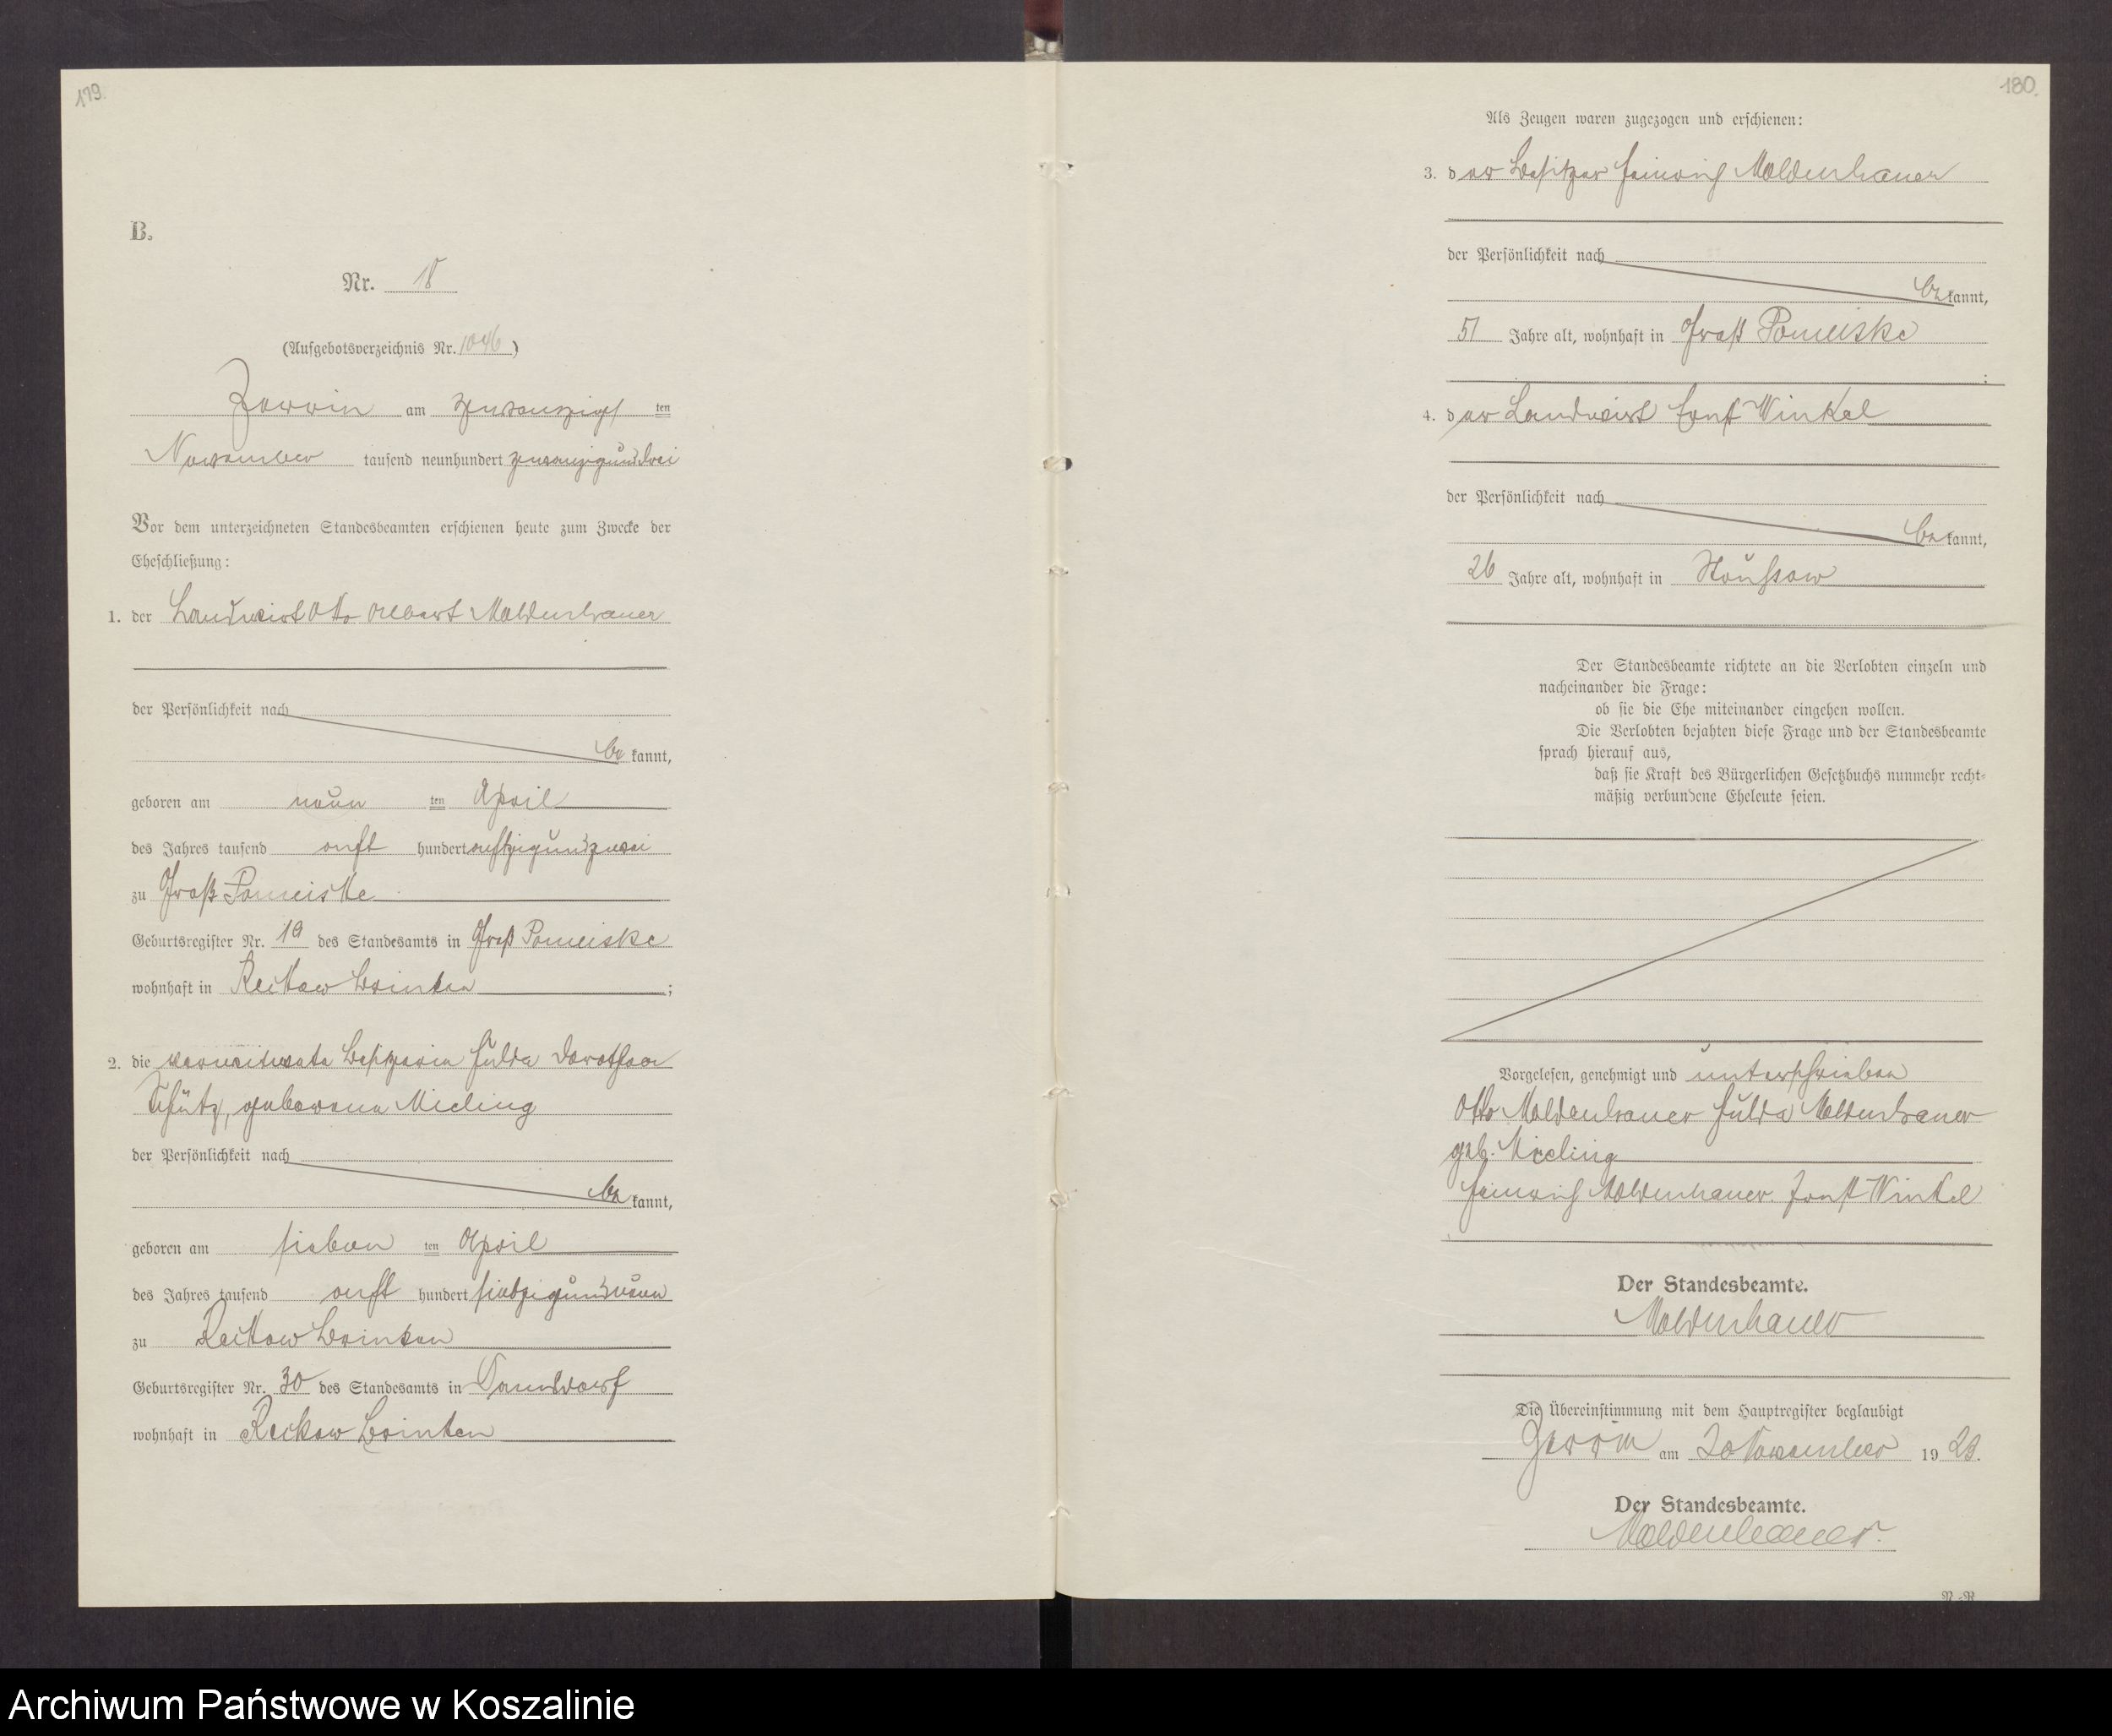 179.
B.
Nr. 18
(Aufgebotsverzeichnis Nr. 1046)
Zerrin am zwanzigsten
November tausend neunhundert zwanzigunddrei
Vor dem unterzeichneten Standesbeamten erschienen heute zum Zwecke der
Eheschließung:
1. der Landwirt Otto Albert Moldenhauer
der Persönlichkeit nach
be kannt,
geboren am neun ten April
des Jahres tausend acht hundert achtzigundzwei
zu Groß Pomeiske
Geburtsregister Nr. 19 des Standesamts in Groß Pomeiske
wohnhaft in Reckow Brinken ;
2. die verwitwete Besitzerin Hulda Dorothea
Schütz, geborene Mieling
der Persönlichkeit nach
be kannt,
geboren am sieben ten April
des Jahres tausend acht hundert siebzigundneun
zu Reckow Brinken
Geburtsregister Nr. 30 des Standesamts in Damsdorf
wohnhaft in Reckow Brinken
180.
Als Zeugen waren zugezogen und erschienen:
3. der Besitzer Heinrich Moldenhauer
der Persönlichkeit nach
be kannt,
51 Jahre alt, wohnhaft in Groß Pomeiske
;
4. der Landwirt Ernst Winkel
der Persönlichkeit nach
be kannt,
26 Jahre alt, wohnhaft in
Der Standesbeamte richtete an die Verlobten einzeln und
nacheinander die Frage:
ob sie die Ehe miteinander eingehen wollen.
Die Verlobten bejahten diese Frage und der Standesbeamte
sprach hierauf aus,
daß sie Kraft des Bürgerlichen Gesetzbuchs nunmehr recht-
mäßig verbundene Eheleute seien.
Vorgelesen, genehmigt und unterschrieben
Otto Moldenhauer Hulda Moldenhauer
geb. Mieling
Heinrich Moldenhauer. Ernst Winkel
Der Standesbeamte.
Moldenhauer
Die Übereinstimmung mit dem Hauptregister beglaubigt
Zerrin am 20 November 19 23.
Der Standesbeamte.
Moldenhauer.
Archiwum Państwowe w Koszalinie